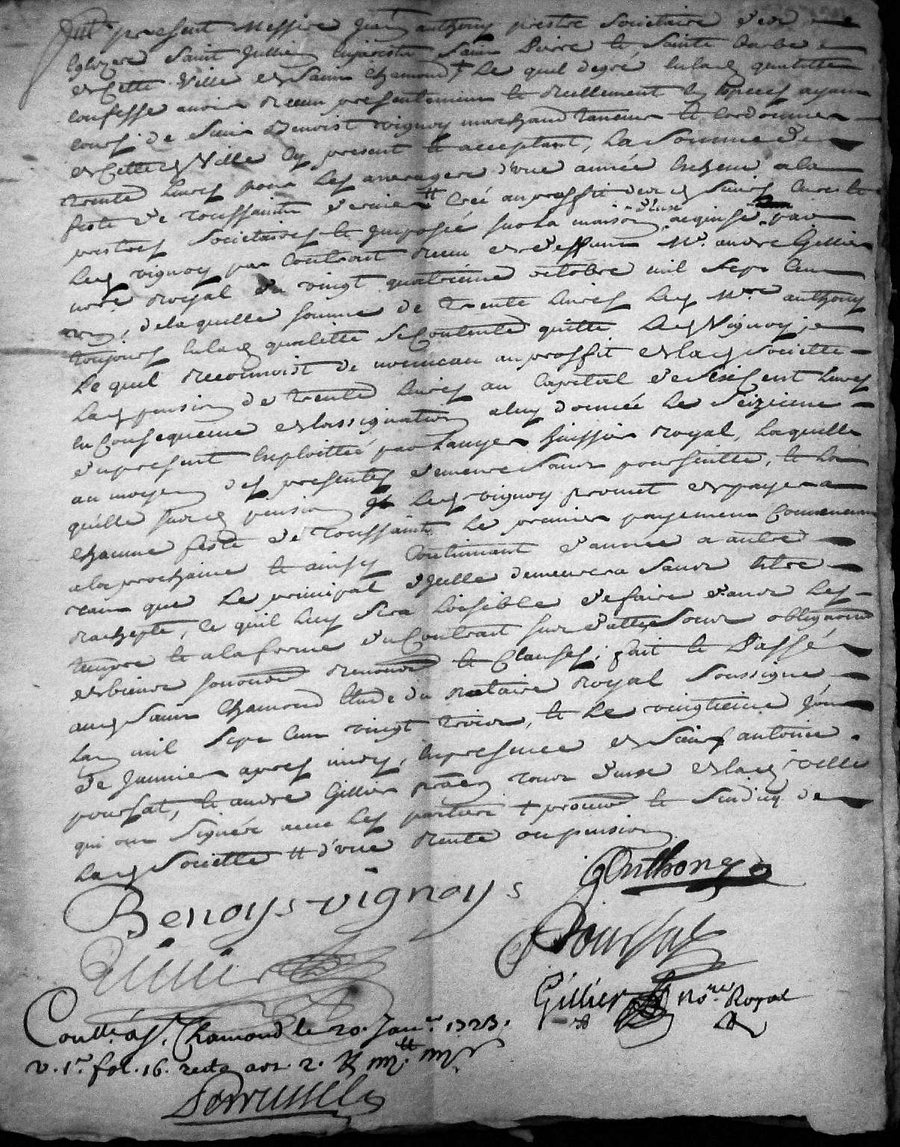 fut present Messire Jean anthony prestre Societaire des
Eglizes Saint Jullien Saint Pierre et Sainte barbe
de Cette Ville de Saint Chamond + Le quel degre qualitte
confesse avoir Receu presentement et Reellement En Especes ayant
cours de Sieur Benoist Vignoy marchand taneur et Cordonnier
de Cette Ville Icy present et acceptant, La Somme de
trente Livres pour Les arrerages d'une année Escheue a la
feste de toussaints dernier # Créé au proffit des Sieurs Curé et
prestres Societaires et Imposée sur La maison d'eux acquise par
Led Vignoy par Contrat Receu par deffunt Me andre Gillier
nore Royal du vingt quatrieme octobre mil Sept Cent
de laquelle somme de trente Livres Led Mre anthony
toujours qualitte se Contente quitte Led Vignoy
Le quel Reconnoist de nouveau au proffit de lad Societte
Lad pension de trente Livres au Capital de Six Cent Livres
En Consequence de lassignation a luy donnée Le Seizieme
du present Exploittée par Huissier Royal, Laquelle
au moyen des presentes demeure Sans poursuitte, et la
quelle susd pension Led Vignoy promet de payer a
Chacune feste de toussaints Le premier payement Commencant
a la prochaine et ainsy Continuant d'année a autre
tant que Le principal d'Icelle demeurera Sans Estre
Rachepté, Ce quil Luy Sera Loisible de faire dans Les
temps et a la forme du Contrat sur datté Sous obligations
de biens soumis Renoncé et Clauses, fait et Passé
aud Saint Chamond Etude du Notaire Royal Soussigné
Lan mil Sept Cent vingt trois, et Le vingtieme Jour
de Janvier apres midy, En presence de Sieur antoine
poursat, et andre Gillier prān tous deux de lad ville
qui ont Signés avec Les parties + procureur et Sindic de
Lad Societte # d'une Rente ou pension
Anthony
Benoys Vignoys
Poursat
Gillier
Gillier nore Royal
Contll. a St. Chamond le 20. Janr. 1723.
v. 1r. fol. 16. recto art. 2.
Perrussel